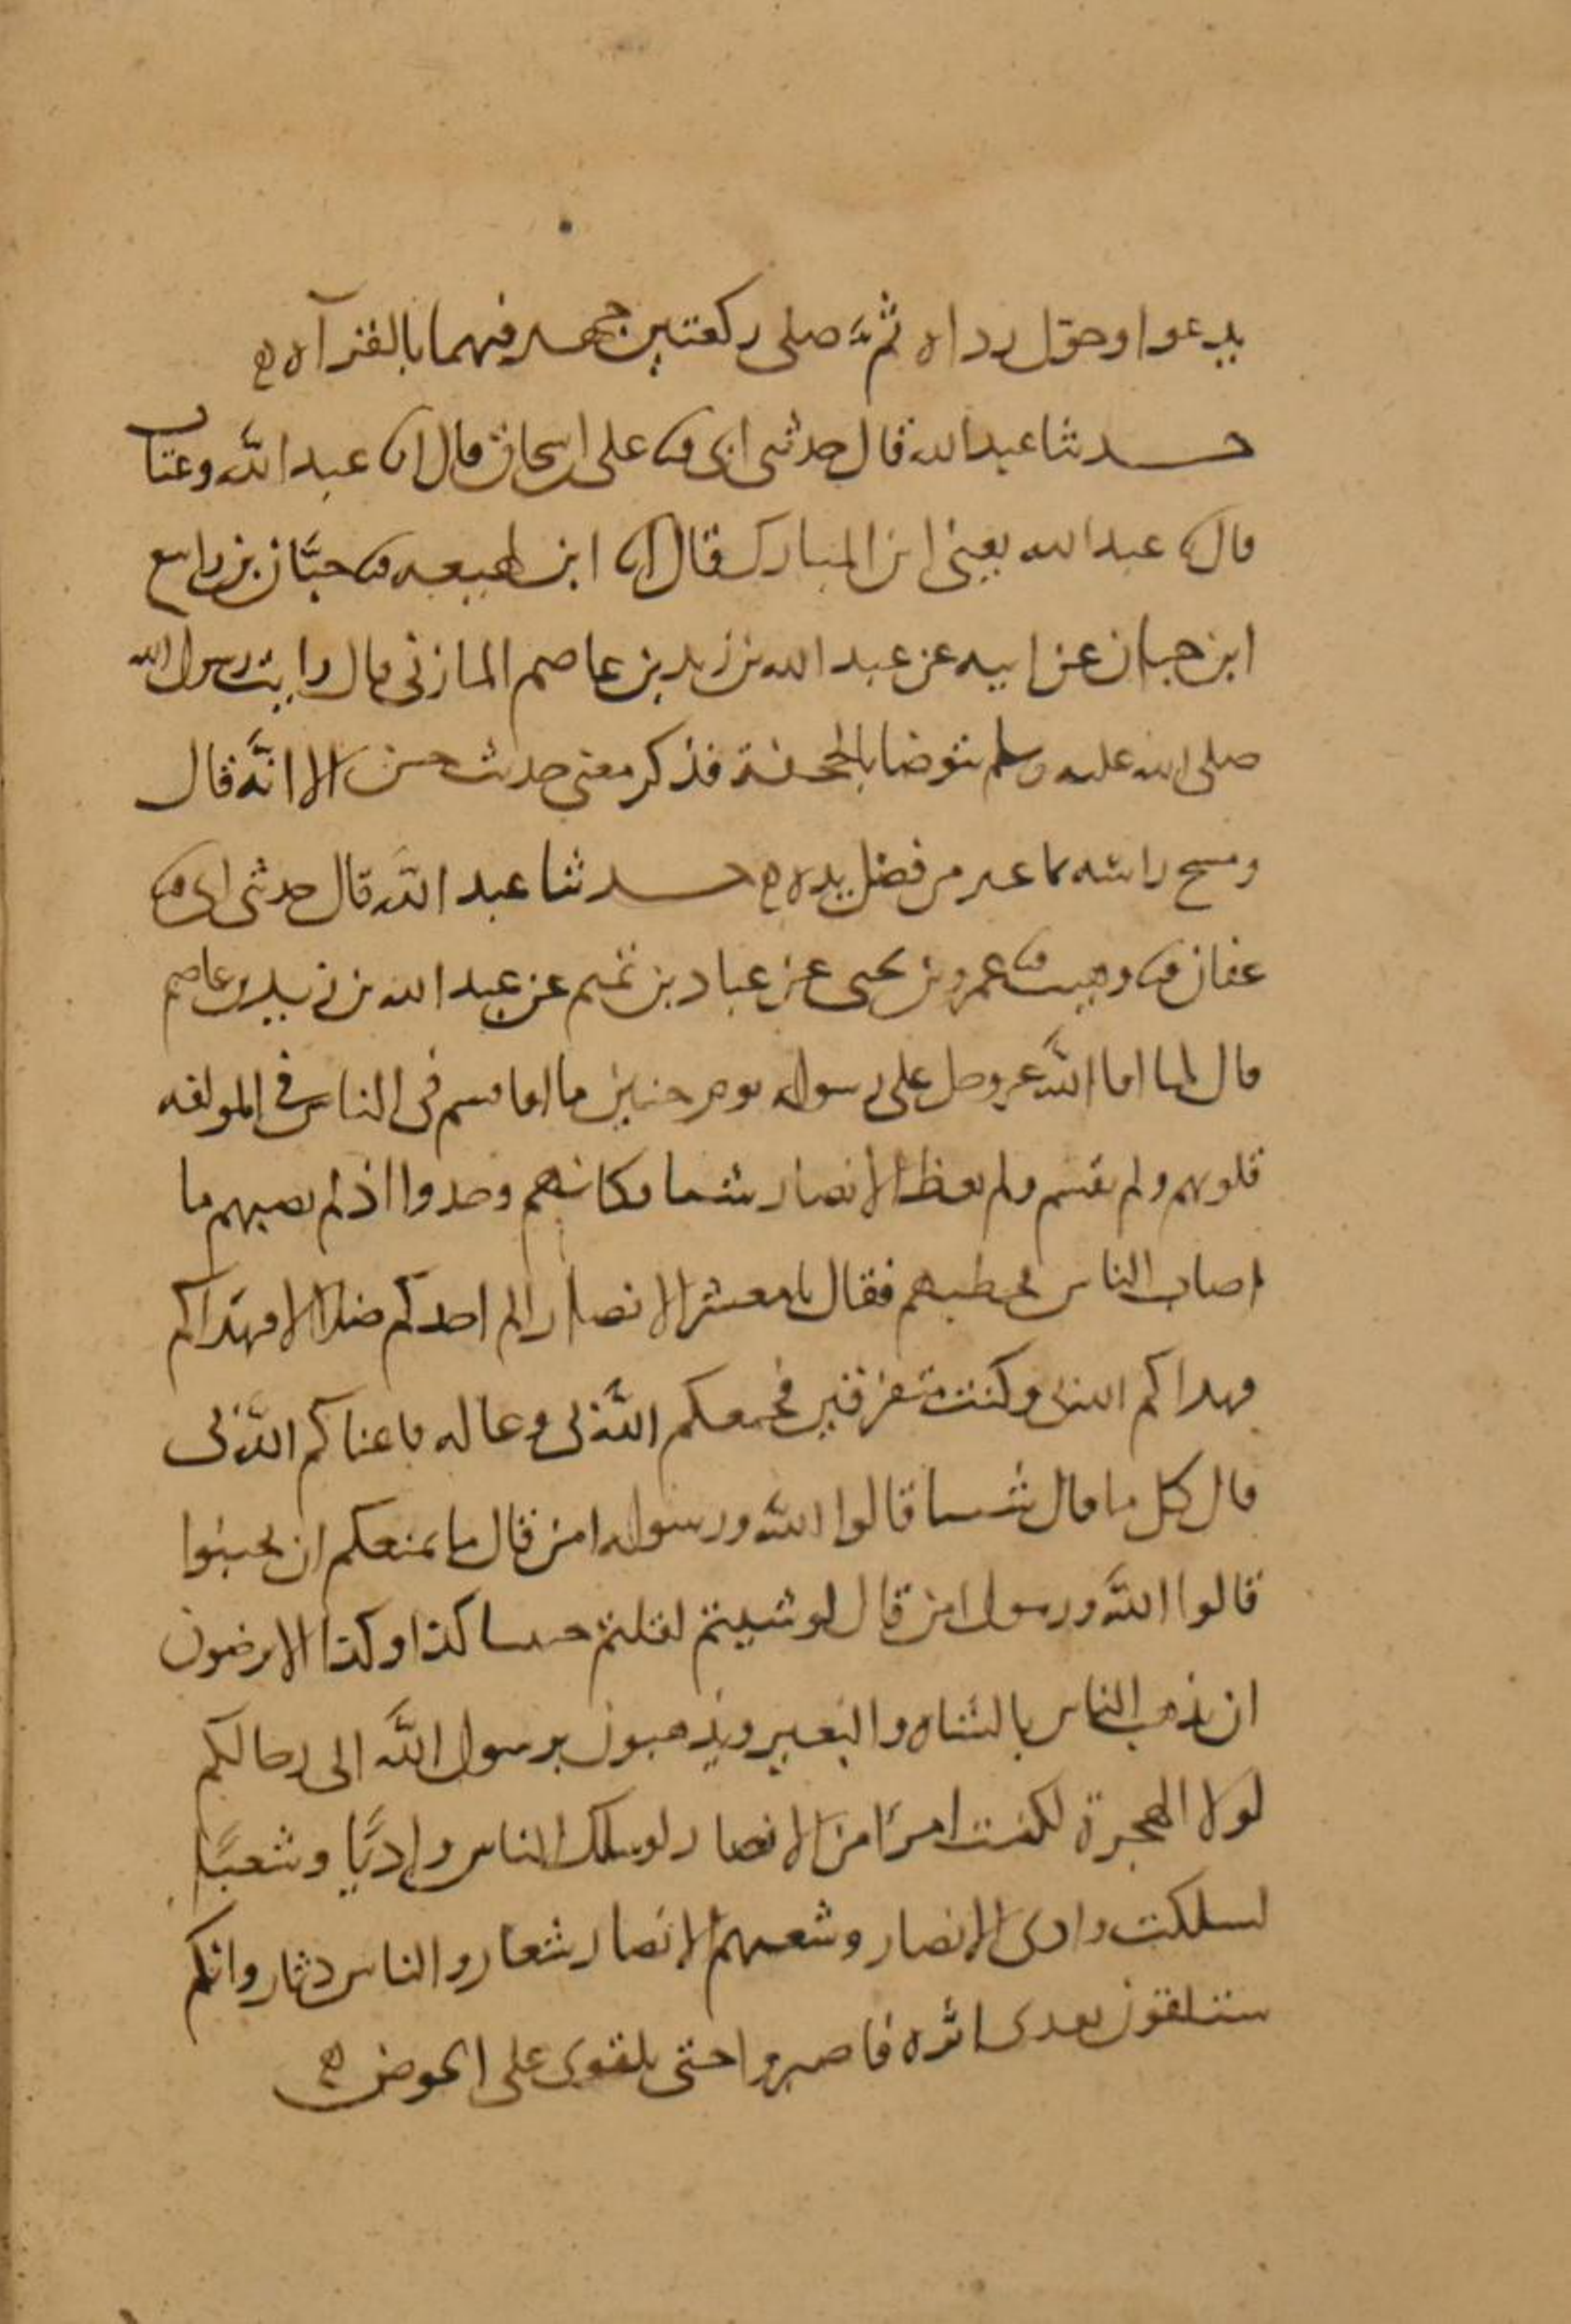 يدعوا وحول رداه ثم صلى ركعتين جهر فيهما بالقرآه
حدثنا عبد الله قال حدثني ابي ثنا على اسحاق قال انا عبد الله وعتاب
قال ثنا عبد الله يعنى ابن المبارك قال انا ابن لهيعه ثنا حبّان بن واسع
ابن حبان عن ابيه عن عبد الله بن زيد بن عاصم المازنى قال رايت رسول الله
صلى الله عليه وسلم توضا بالجحفة فذكر معنى حديث حسن الا انّه قال
ومسح راسه بما غير من فضل يده حدثنا عبد الله قال حدثنى ابى ثنا
عفان ثنا وهيب ثنا عمرو بن يحيى عن عباد بن تميم عن عبد الله بن زيد بن عاصم
قال لما افا اللّه عز وجل على رسوله يوم حنين ما افا قسم فى الناس في المولفه
قلوبهم ولم يقسم ولم يعظ الانصار شيا فكانهم وجدوا اذ لم يصبهم ما
اصاب الناس فخطبهم فقال يا معشر الانصار الم اجدكم ضلالا فهداكم
فهداكم الله بى وكنتم متفرقين فجمعكم اللّه بى وعاله فاغناكم اللّه بى
قال كل ما قال شيا قالوا اللّه ورسوله امن قال ما يمنعكم ان تجيبوا
قالوا اللّه ورسوله امن قال لو شيتم لقلتم جيتنا كذا وكذا الا ترضون
ان يذهب الناس بالشاه والبعير وتذهبون برسول اللّه الى رحالكم
لولا الهجرة لكنت امرًا من الانصار لو سلك الناس واديًا وشعبًا
لسلكت وادى الانصار وشعبهم الانصار شعار والناس دثار وانكم
ستلقون بعدى اثره فاصبروا حتى تلقونى على الحوض